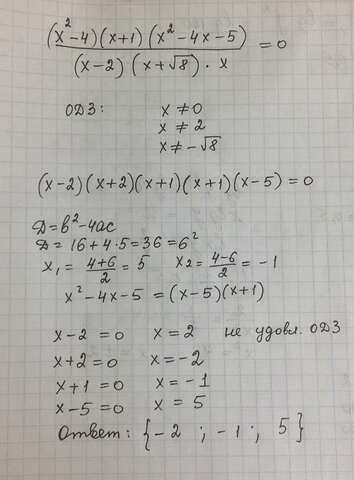 (x²-4)(x+1)(x²-4x-5) / (x-2)(x+√8)·x = 0
ОДЗ: x ≠ 0
x ≠ 2
x ≠ -√8
(x-2)(x+2)(x+1)(x+1)(x-5) = 0
D = b²-4ac
D = 16+4·5=36=6²
x₁ = (4+6)/2 = 5 x₂ = (4-6)/2 = -1
x²-4x-5 = (x-5)(x+1)
x-2 = 0 x = 2 не удовл. ОДЗ
x+2 = 0 x = -2
x+1 = 0 x = -1
x-5 = 0 x = 5
Ответ: {-2 ; -1 ; 5}